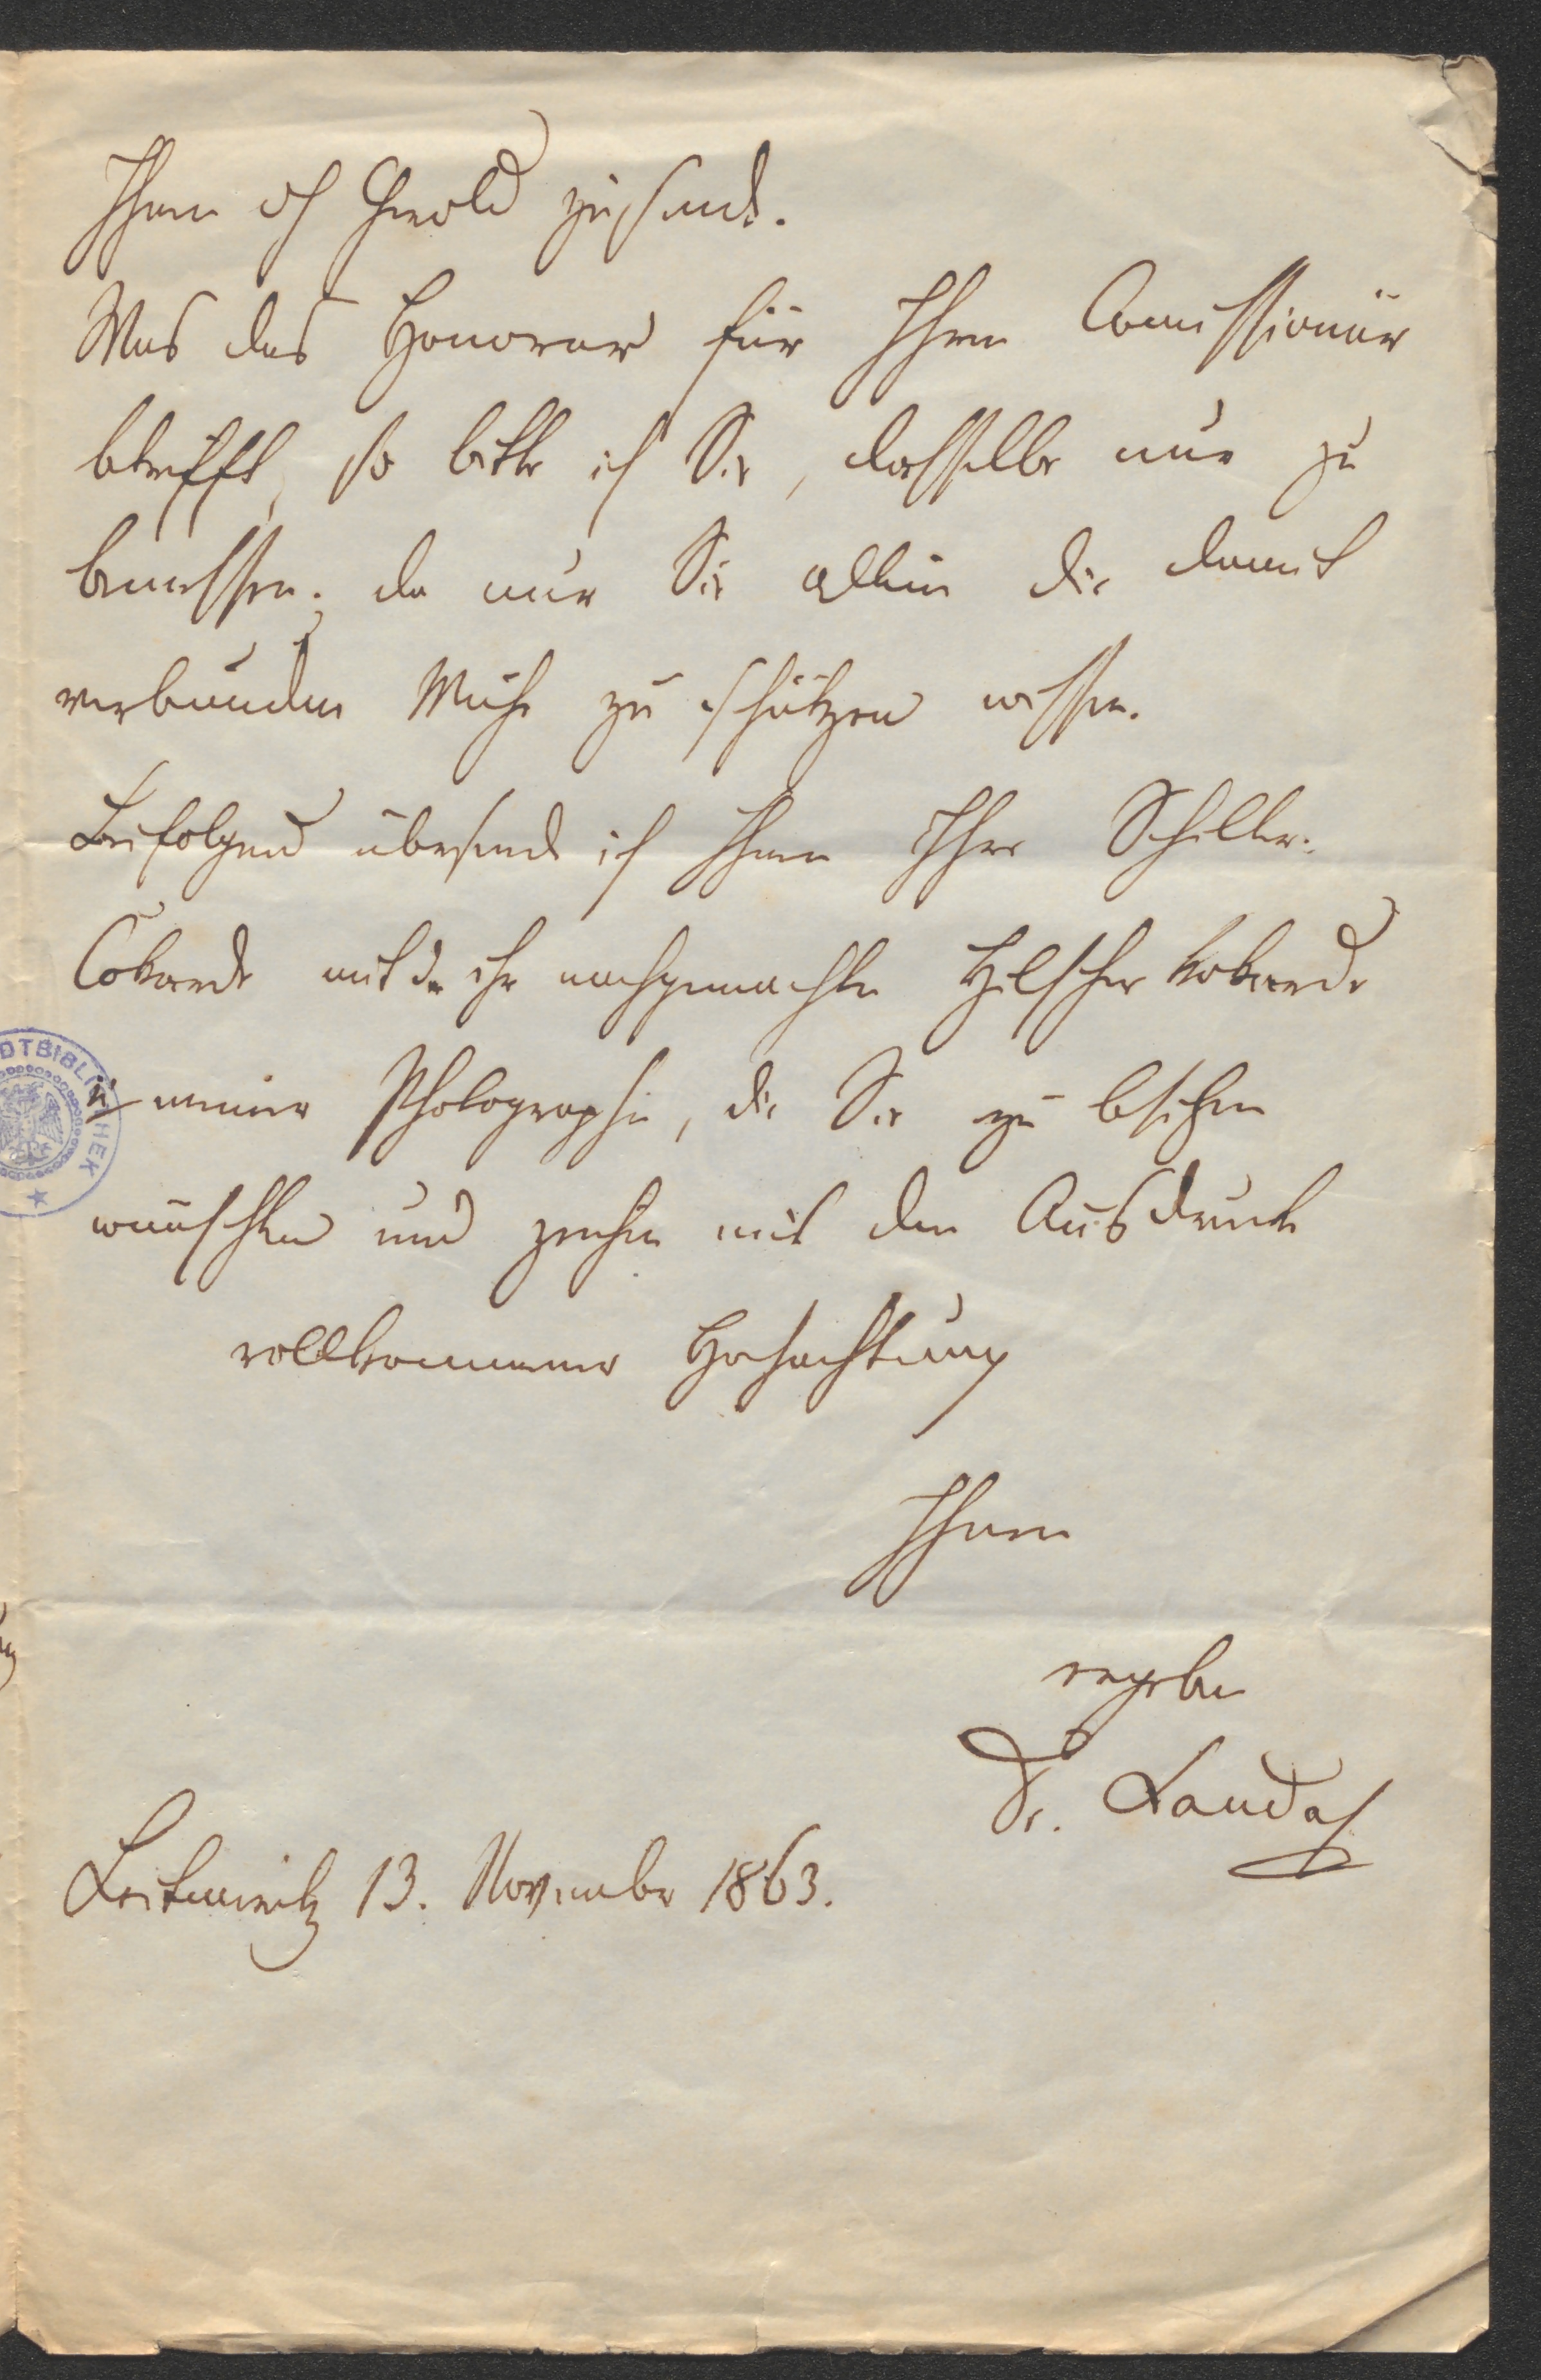 Ihnen ich Gerold zusende.
Was das Honorar für Ihren Comissionär
betrifft, so bitte ich Sie, dasselbe nur zu
bemessen; da nur Sie allein die damit
verbunden Mühe zu schätzen wissen.
Beifolgend übersende ich Ihnen Ihre Schiller-
Cokarde mit der ihr nachgemachten Hilscher Kokarde
u meiner Photographie, die Sie zu besitzen
wünschten und zeichne mit dem Ausdrucke
vollkommener Hochachtung
Ihnen
ergeben
Dr. Laudas
Leitmeritz 13. November 1863.
DTBIBLI HEK